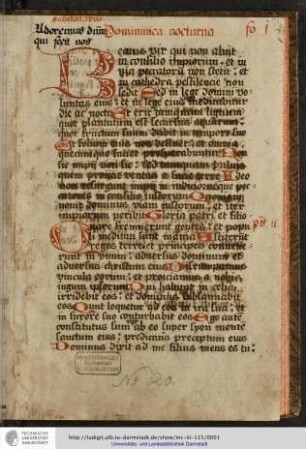 Adoremus dnm Dominica nocturna fo j
qui fecit nos
Beatus vir qui non abiit
in consilio impiorum et in
via peccatorū non stetit et
in cathedra pestilencie non
sedit Sed in lege domini vo
luntas eius et in lege eius meditabitur
die ac nocte Et erit tamquam lignum
quod plantatum est secus decursus aquarum
quod fructum suum dabit in tempore suo
Et folium eius non defluet et omnia
quecumque faciet prosperabuntur Non
sic impii non sic sed tamquam puluis
quem proicit ventus a facie terre Ideo
non resurgunt impii in iudicio neque pec
catores in consilio iustorum Quoniam
nouit dominus viam iustorum et iter
impiorum peribit Gloria patri et filio
Quare fremuerunt gentes et popu ps ij
li meditati sunt inania Astiterunt
reges terre et principes conuene
runt in vnum aduersus dominum et
aduersus christum eius Disrumpamus
vincula eorum et proiciamus a nobis
iugum ipsorum Qui habitat in celis
irridebit eos et dominus subsannabit
eos Tunc loquetur ad eos in ira sua et
in furore suo conturbabit eos Ego autē
constitutus sum ab eo super syon monte
sanctum eius predicans preceptum eius
Dominus dixit ad me filius meus es tu
No 20.
TECHNISCHE UNIVERSITÄT DARMSTADT
http://tudigit.ulb.tu-darmstadt.de/show/inc-iii-125/0001
Universitäts- und Landesbibliothek Darmstadt